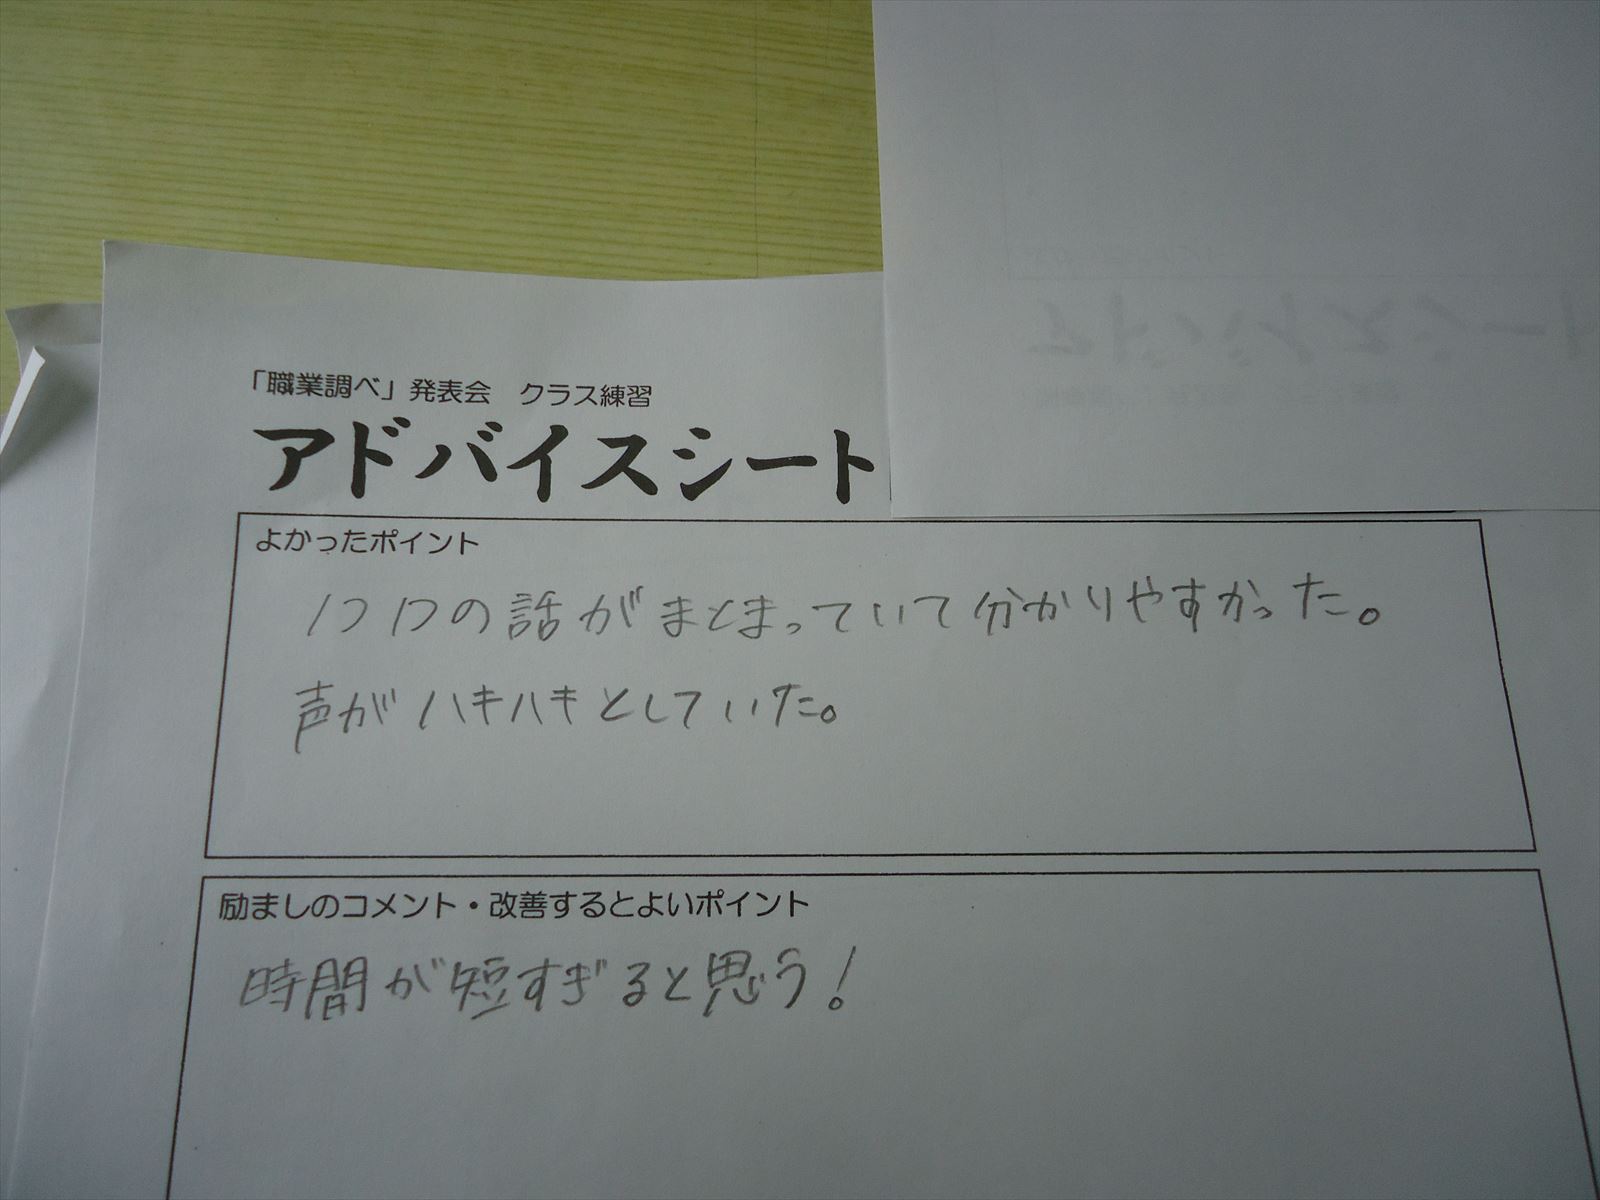 「職業調べ」発表会 クラス練習
アドバイスシート
よかったポイント
1つ1つの話がまとまっていて分かりやすかった。
声がハキハキとしていた。
励ましのコメント・改善するとよいポイント
時間が短すぎると思う!
アドバイスシート